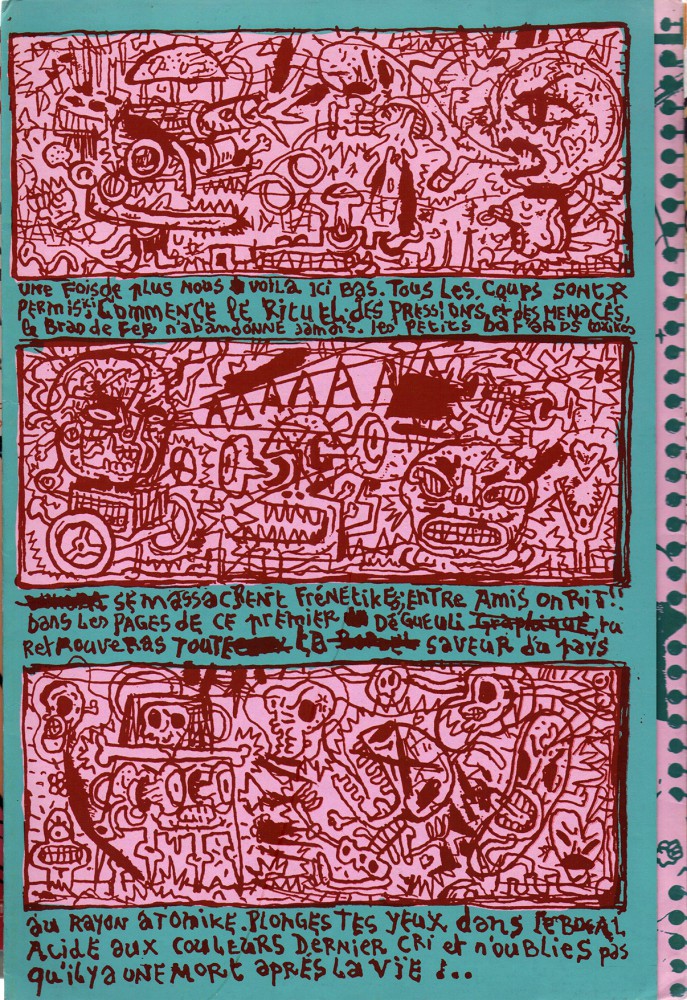 UNE FOIS de PLUS NOUS VOILÀ ICI BAS. TOUS LES COUPS SONT
PERMIS: COMMENCE LE RITUEL DES PRESSIONS, et DES MENACES,
le Bras de Fer n'abandonne Jamais. les PETITS BATARDS toxikos
SE MASSACRENT FRÉNETIKES, ENTRE AMIS ON RIT!!
DANS LES PAGES DE CE PREMIER DÉGUEULI Graphique, tu
RETROUVERAS TOUTE LA SAVEUR du PAYS
AU RAYON ATOMIKE. PLONGES TES YEUX dans LE BOCAL
ACIDE AUX COULEURS DERNIER CRI et n'OUBLIES pas
qu'il y a UNE MORT APRÈS LA VIE !..